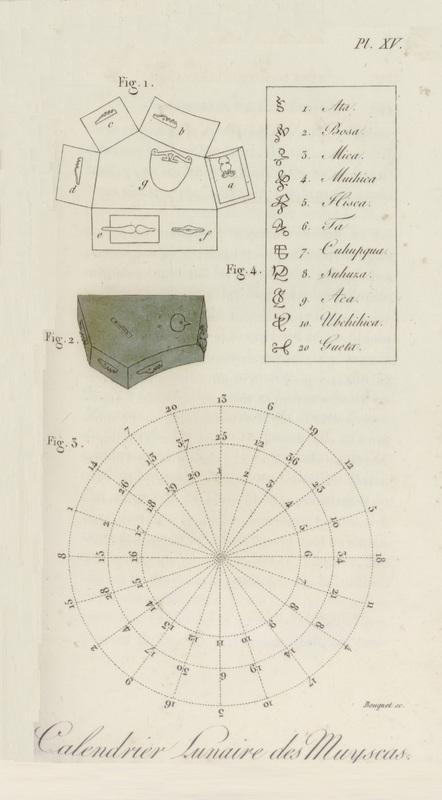 Pl. XV.
Fig. 1.
c
b
d
g
a
e
f
1. Ata.
2. Bosa.
3. Mica.
4. Muihica
5. Hisca.
6. Ta
7. Cuhupqua.
8. Suhuza.
9. Aca.
10. Ubchihica.
20 Gueta.
Fig. 4.
Fig. 2.
Fig. 3.
13 6 19 12 5 18 11 4 17 10 3 16 9 2 15 8 1 14 7 20
25 12 36 23 10 34 21 8 14 19 6 30 17 4 28 15 2 26 13 37
1 2 3 4 5 6 7 8 9 10 11 12 13 14 15 16 17 18 19 20
Bouquet sc.
Calendrier Lunaire des Muyscas.